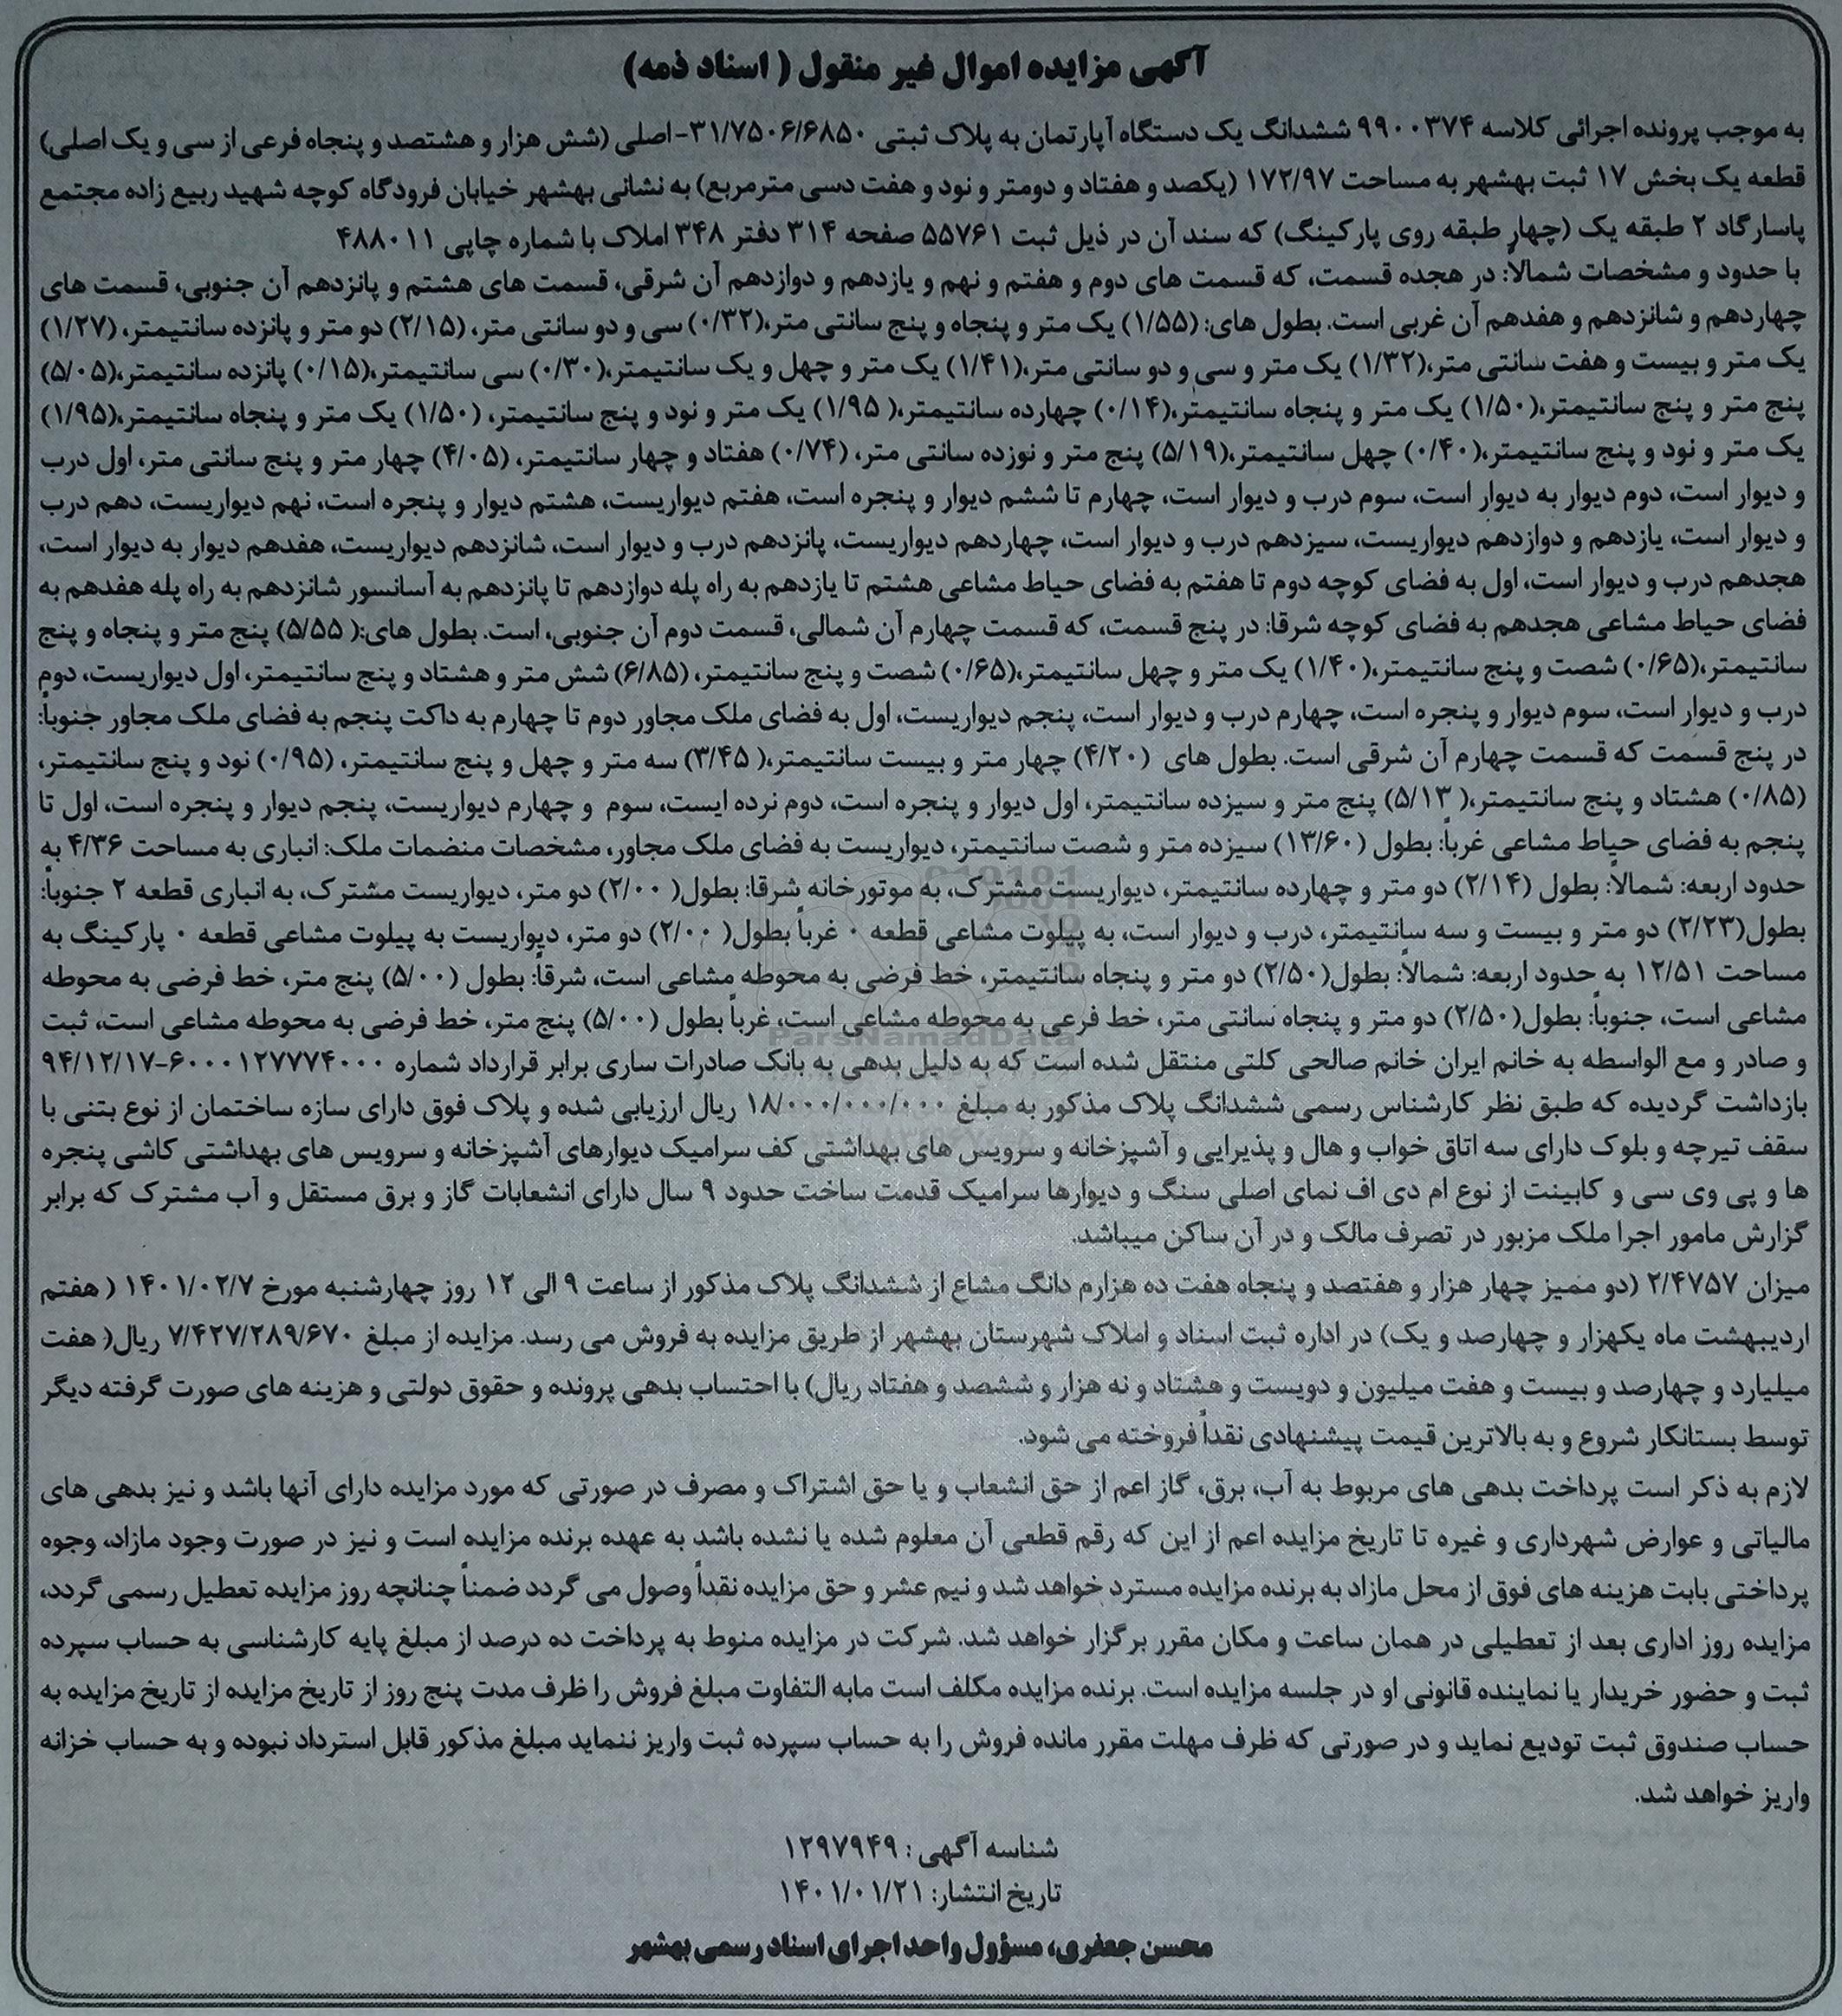 آگهی مزایده اموال غیر منقول ( اسناد ذمه)
به موجب پرونده اجرائی کلاسه ۹۹۰۰۳۷۴ ششدانگ یک دستگاه آپارتمان به پلاک ثبتی ۳۱/۷۵۰۶/۶۸۵۰-اصلی (شش هزار و هشتصد و پنجاه فرعی از سی و یک اصلی)
قطعه یک بخش ۱۷ ثبت بهشهر به مساحت ۱۷۲/۹۷ (یکصد و هفتاد و دومتر و نود و هفت دسی مترمربع) به نشانی بهشهر خیابان فرودگاه کوچه شهید ربیع زاده مجتمع
پاسارگاد ۲ طبقه یک (چهار طبقه روی پارکینگ) که سند آن در ذیل ثبت ۵۵۷۶۱ صفحه ۳۱۴ دفتر ۳۴۸ املاک با شماره چاپی ۴۸۸۰۱۱
با حدود و مشخصات شمالاً: در هجده قسمت، که قسمت های دوم و هفتم و نهم و یازدهم و دوازدهم آن شرقی، قسمت های هشتم و پانزدهم آن جنوبی، قسمت های
چهاردهم و شانزدهم و هفدهم آن غربی است. بطول های: (۱/۵۵) یک متر و پنجاه و پنج سانتی متر،(۰/۳۲) سی و دو سانتی متر، (۲/۱۵) دو متر و پانزده سانتیمتر، (۱/۲۷)
یک متر و بیست و هفت سانتی متر،(۱/۳۲) یک متر و سی و دو سانتی متر،(۱/۴۱) یک متر و چهل و یک سانتیمتر،(۰/۳۰) سی سانتیمتر،(۰/۱۵) پانزده سانتیمتر،(۵/۰۵)
پنج متر و پنج سانتیمتر،(۱/۵۰) یک متر و پنجاه سانتیمتر،(۰/۱۴) چهارده سانتیمتر،( ۱/۹۵) یک متر و نود و پنج سانتیمتر، (۱/۵۰) یک متر و پنجاه سانتیمتر،(۱/۹۵)
یک متر و نود و پنج سانتیمتر،(۰/۴۰) چهل سانتیمتر،(۵/۱۹) پنج متر و نوزده سانتی متر، (۰/۷۴) هفتاد و چهار سانتیمتر، (۴/۰۵) چهار متر و پنج سانتی متر، اول درب
و دیوار است، دوم دیوار به دیوار است، سوم درب و دیوار است، چهارم تا ششم دیوار و پنجره است، هفتم دیواریست، هشتم دیوار و پنجره است، نهم دیواریست، دهم درب
و دیوار است، یازدهم و دوازدهم دیواریست، سیزدهم درب و دیوار است، چهاردهم دیواریست، پانزدهم درب و دیوار است، شانزدهم دیواریست، هفدهم دیوار به دیوار است،
هجدهم درب و دیوار است، اول به فضای کوچه دوم تا هفتم به فضای حیاط مشاعی هشتم تا یازدهم به راه پله دوازدهم تا پانزدهم به آسانسور شانزدهم به راه پله هفدهم به
فضای حیاط مشاعی هجدهم به فضای کوچه شرقا: در پنج قسمت، که قسمت چهارم آن شمالی، قسمت دوم آن جنوبی، است. بطول های:( ۵/۵۵) پنج متر و پنجاه و پنج
سانتیمتر،(۰/۶۵) شصت و پنج سانتیمتر،(۱/۴۰) یک متر و چهل سانتیمتر،(۰/۶۵) شصت و پنج سانتیمتر، (۶/۸۵) شش متر و هشتاد و پنج سانتیمتر، اول دیواریست، دوم
درب و دیوار است، سوم دیوار و پنجره است، چهارم درب و دیوار است، پنجم دیواریست، اول به فضای ملک مجاور دوم تا چهارم به داکت پنجم به فضای ملک مجاور جنوباً:
در پنج قسمت که قسمت چهارم آن شرقی است. بطول های (۴/۲۰) چهار متر و بیست سانتیمتر،( ۳/۴۵) سه متر و چهل و پنج سانتیمتر، (۰/۹۵) نود و پنج سانتیمتر،
(۰/۸۵) هشتاد و پنج سانتیمتر،( ۵/۱۳) پنج متر و سیزده سانتیمتر، اول دیوار و پنجره است، دوم نرده ایست، سوم و چهارم دیواریست، پنجم دیوار و پنجره است، اول تا
پنجم به فضای حیاط مشاعی غرباً: بطول (۱۳/۶۰) سیزده متر و شصت سانتیمتر، دیواریست به فضای ملک مجاور، مشخصات منضمات ملک: انباری به مساحت ۴/۳۶ به
حدود اربعه: شمالاً: بطول (۲/۱۴) دو متر و چهارده سانتیمتر، دیواریست مشترک، به موتورخانه شرقا: بطول( ۲/۰۰) دو متر، دیواریست مشترک، به انباری قطعه ۲ جنوباً:
بطول(۲/۲۳) دو متر و بیست و سه سانتیمتر، درب و دیوار است، به پیلوت مشاعی قطعه ۰ غرباً بطول( ۲/۰۰) دو متر، دیواریست به پیلوت مشاعی قطعه ۰ پارکینگ به
مساحت ۱۲/۵۱ به حدود اربعه: شمالاً: بطول(۲/۵۰) دو متر و پنجاه سانتیمتر، خط فرضی به محوطه مشاعی است، شرقاً: بطول (۵/۰۰) پنج متر، خط فرضی به محوطه
مشاعی است، جنوباً: بطول(۲/۵۰) دو متر و پنجاه سانتی متر، خط فرعی به محوطه مشاعی است، غرباً بطول (۵/۰۰) پنج متر، خط فرضی به محوطه مشاعی است، ثبت
ParsNamadData
و صادر و مع الواسطه به خانم ایران خانم صالحی کلتی منتقل شده است که به دلیل بدهی به بانک صادرات ساری برابر قرارداد شماره ۶۰۰۰۱۲۷۷۷۴۰۰۰-۹۴/۱۲/۱۷
بازداشت گردیده که طبق نظر کارشناس رسمی ششدانگ پلاک مذکور به مبلغ ۱۸/۰۰۰/۰۰۰/۰۰۰ ریال ارزیابی شده و پلاک فوق دارای سازه ساختمان از نوع بتنی با
سقف تیرچه و بلوک دارای سه اتاق خواب و هال و پذیرایی و آشپزخانه و سرویس های بهداشتی کف سرامیک دیوارهای آشپزخانه و سرویس های بهداشتی کاشی پنجره
ها و پی وی سی و کابینت از نوع ام دی اف نمای اصلی سنگ و دیوارها سرامیک قدمت ساخت حدود ۹ سال دارای انشعابات گاز و برق مستقل و آب مشترک که برابر
گزارش مامور اجرا ملک مزبور در تصرف مالک و در آن ساکن میباشد.
میزان ۲/۴۷۵۷ (دو ممیز چهار هزار و هفتصد و پنجاه هفت ده هزارم دانگ مشاع از ششدانگ پلاک مذکور از ساعت ۹ الی ۱۲ روز چهارشنبه مورخ ۱۴۰۱/۰۲/۷ ( هفتم
اردیبهشت ماه یکهزار و چهارصد و یک) در اداره ثبت اسناد و املاک شهرستان بهشهر از طریق مزایده به فروش می رسد. مزایده از مبلغ ۷/۴۲۷/۲۸۹/۶۷۰ ریال( هفت
میلیارد و چهارصد و بیست و هفت میلیون و دویست و هشتاد و نه هزار و ششصد و هفتاد ریال) با احتساب بدهی پرونده و حقوق دولتی و هزینه های صورت گرفته دیگر
توسط بستانکار شروع و به بالاترین قیمت پیشنهادی نقداً فروخته می شود.
لازم به ذکر است پرداخت بدهی های مربوط به آب، برق، گاز اعم از حق انشعاب و یا حق اشتراک و مصرف در صورتی که مورد مزایده دارای آنها باشد و نیز بدهی های
مالیاتی و عوارض شهرداری و غیره تا تاریخ مزایده اعم از این که رقم قطعی آن معلوم شده یا نشده باشد به عهده برنده مزایده است و نیز در صورت وجود مازاد، وجوه
پرداختی بابت هزینه های فوق از محل مازاد به برنده مزایده مسترد خواهد شد و نیم عشر و حق مزایده نقداً وصول می گردد ضمناً چنانچه روز مزایده تعطیل رسمی گردد،
مزایده روز اداری بعد از تعطیلی در همان ساعت و مکان مقرر برگزار خواهد شد. شرکت در مزایده منوط به پرداخت ده درصد از مبلغ پایه کارشناسی به حساب سپرده
ثبت و حضور خریدار یا نماینده قانونی او در جلسه مزایده است. برنده مزایده مکلف است مابه التفاوت مبلغ فروش را ظرف مدت پنج روز از تاریخ مزایده از تاریخ مزایده به
حساب صندوق ثبت تودیع نماید و در صورتی که ظرف مهلت مقرر مانده فروش را به حساب سپرده ثبت واریز ننماید مبلغ مذکور قابل استرداد نبوده و به حساب خزانه
واریز خواهد شد.
شناسه آگهی : ۱۲۹۷۹۴۹
تاریخ انتشار: ۱۴۰۱/۰۱/۲۱
محسن جعفری، مسؤول واحد اجرای اسناد رسمی بهشهر